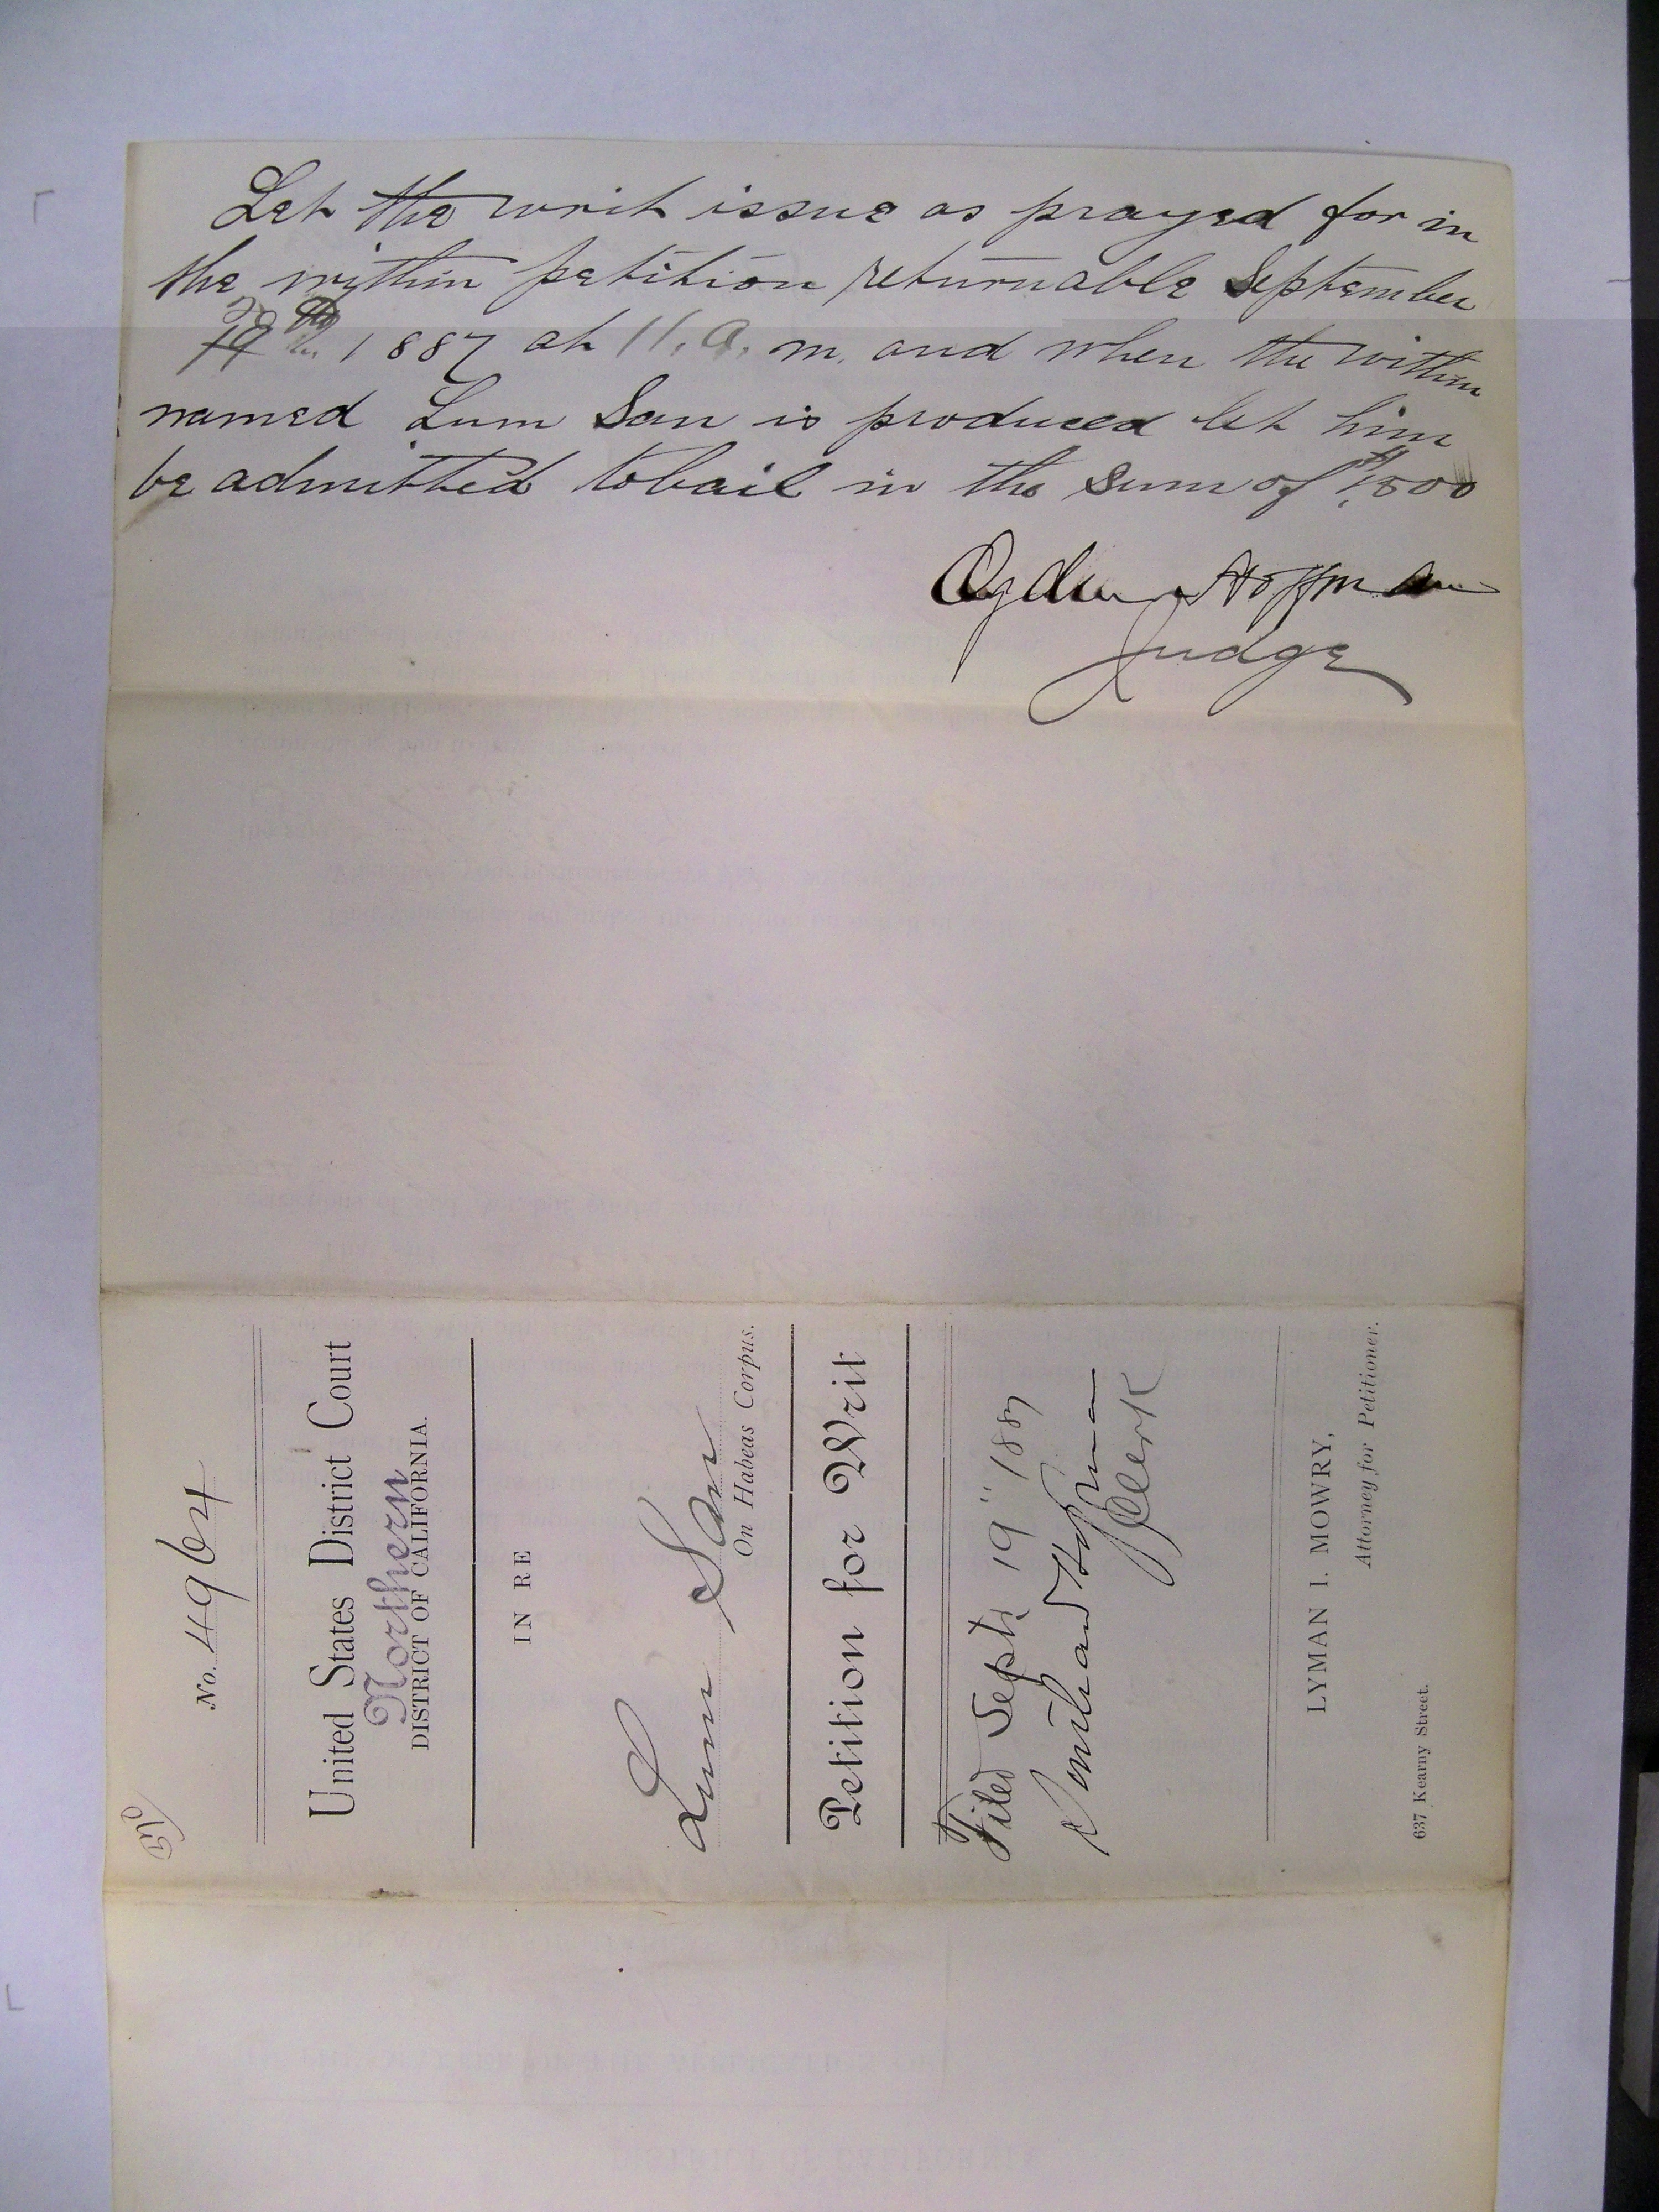 Let the writ issue as prayed for in
the within petition returnable September
1887 at 11. a. m. and when the within
named Lum San is produced let him
be admitted to bail in the sum of
Ogden Hoffman
Judge
No. 4964
United States District Court
Northern
DISTRICT OF CALIFORNIA.
IN RE
Lum San
On Habeas Corpus.
Petition for Writ
Filed Sept. 19" 1887
Southard Hoffman
Clerk
LYMAN I. MOWRY,
Attorney for Petitioner.
637 Kearny Street.